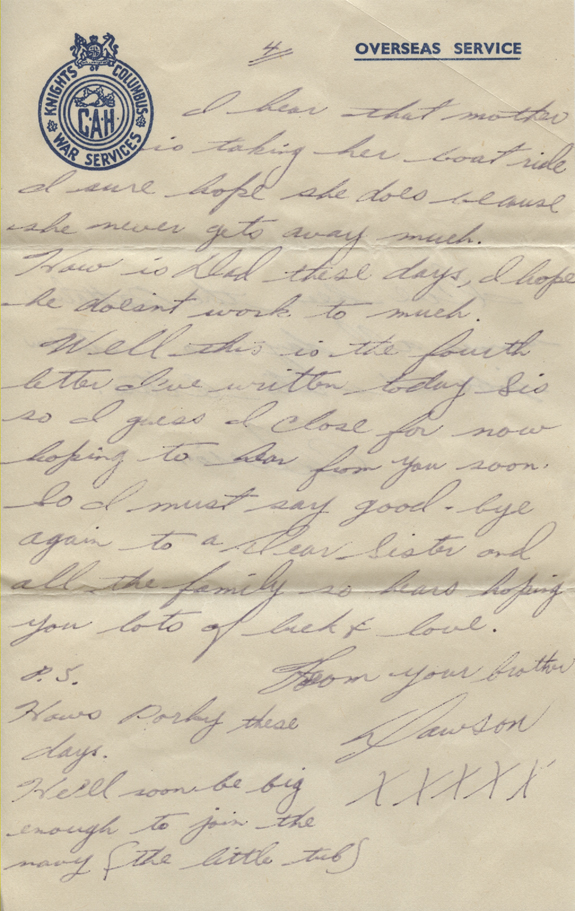 4
OVERSEAS SERVICE
KNIGHTS OF COLUMBUS
CAH
WAR SERVICES
I hear that mother
is taking her boat ride
I sure hope she does because
she never gets away much.
How is Dad these days, I hope
he doesn't work to much.
Well this is the fourth
letter I've written today Sis
so I guess I close for now
hoping to hear from you soon.
So I must say good-bye
again to a dear Sister and
all the family so hears hoping
you lots of luck & love.
From your brother
Dawson
XXXXX
P.S.
Hows Porky these
days.
He'll soon be big
enough to join the
navy (the little tub)